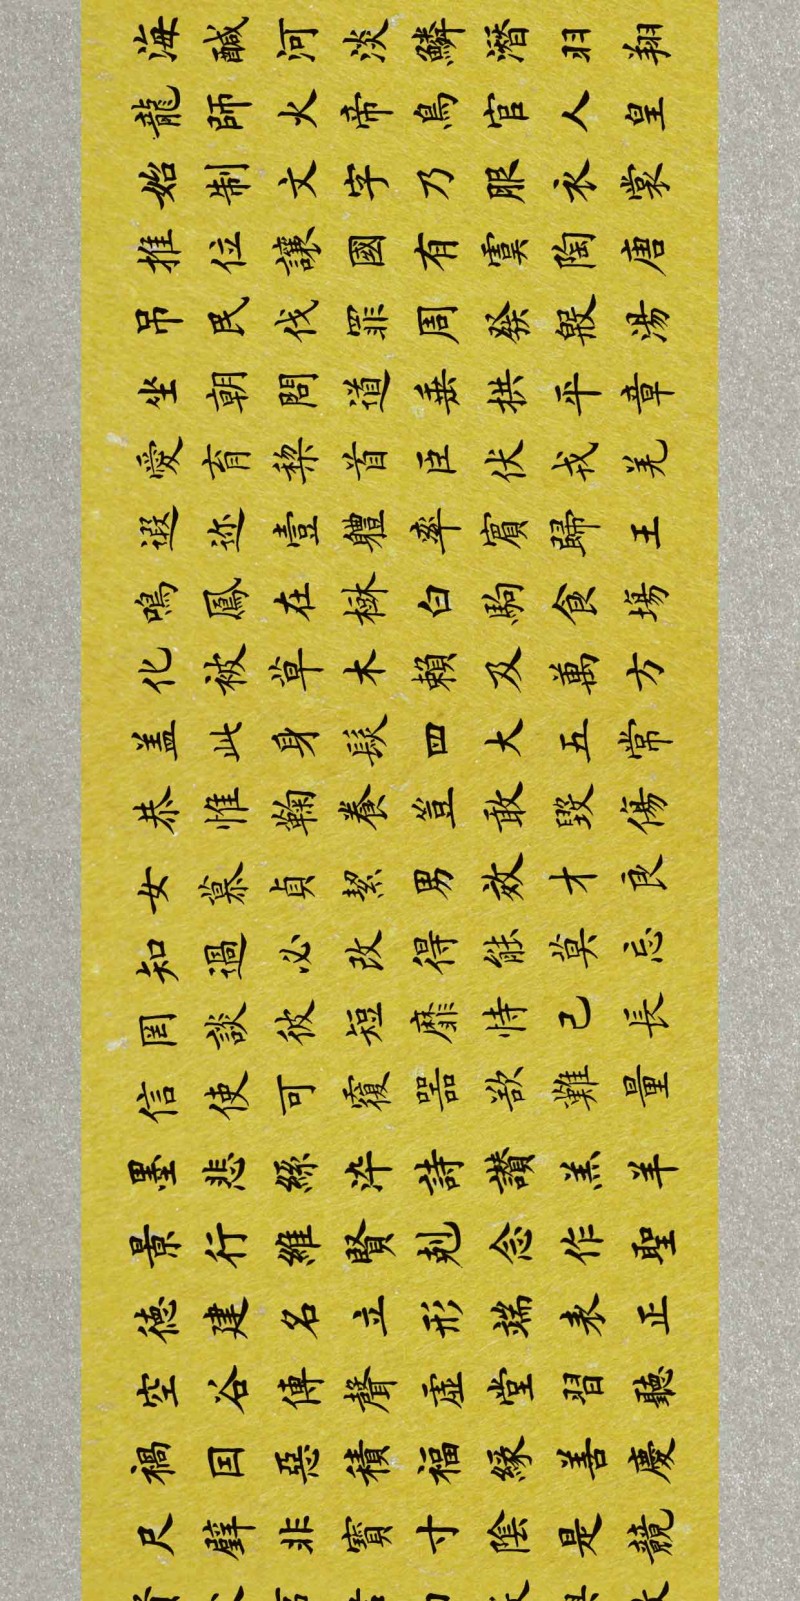 海鹹河淡鱗潛羽翔
龍師火帝鳥官人皇
始制文字乃服衣裳
推位讓國有虞陶唐
吊民伐罪周發殷湯
坐朝問道垂拱平章
愛育黎首臣伏戎羌
遐迩壹體率賓歸王
鳴鳳在樹白駒食場
化被草木賴及萬方
盖此身髮四大五常
恭惟鞠養豈敢毀傷
女慕貞絜男效才良
知過必改得能莫忘
罔談彼短靡恃己長
信使可覆器欲難量
墨悲絲染詩讚羔羊
景行維賢剋念作聖
德建名立形端表正
空谷傳聲虛堂習聽
禍因惡積福緣善慶
尺璧非寶寸陰是競